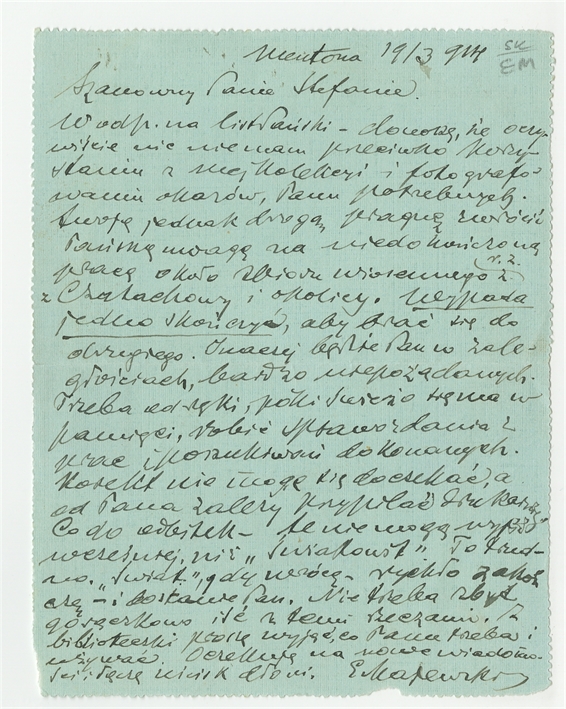 Mentona 19/3 914
SK
EM
Szanowny Panie Stefanie.
W odp. na list Pański – donoszę, że oczy-
wiście nic nie mam przeciwko korzy-
staniu z mej kolekcyi i fotografo-
waniu okazów, Panu potrzebnych.
Swoją jednak drogą, pragnę zwrócić
Pańską uwagę na niedokończoną
pracę około zbioru wiosennego r. z.
z Czatachowy i okolicy. Wypada
jedno skończyć, aby brać się do
drugiego. Inaczej będzie Pan w zale-
głościach, bardzo niepożądanych.
Trzeba od ręki, póki świeżo się ma w
pamięci, robić sprawozdania z
prac i poszukiwań dokonanych.
nie mogę się doczekać, a
od Pana zależy przypilać
Co do odbitek – te nie mogą wyjść
wcześniej, niż „Światowit”. To trud-
no. „Świat.”, gdy wrócę – rychło zakoń-
czę – i dostanie Pan. Nie trzeba zbyt
gorączkowo iść z temi rzeczami. Z
biblioteczki proszę wyjąć, co Panu trzeba i
używać. Oczekuję na nowe wiadomo-
ści i łączę uścisk dłoni. E Majewski